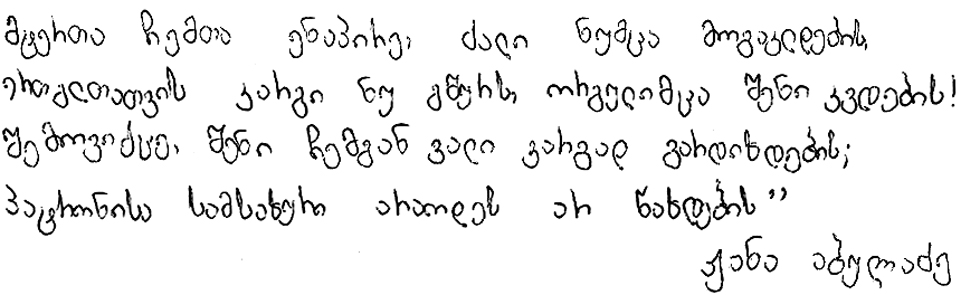 მტერთა ჩემთა ენაპირე, ძალი ნუმცა მოგაკლდების,
ერთგულთათვის კარგი ნუ გშურს, ორგულიმცა შენი კვდების!
შემოვიქცე, შენი ჩემგან ვალი კარგად გარდიხდების;
პატრონისა სამსახური არაოდეს არ წახდების”
ჟანა აბულაძე